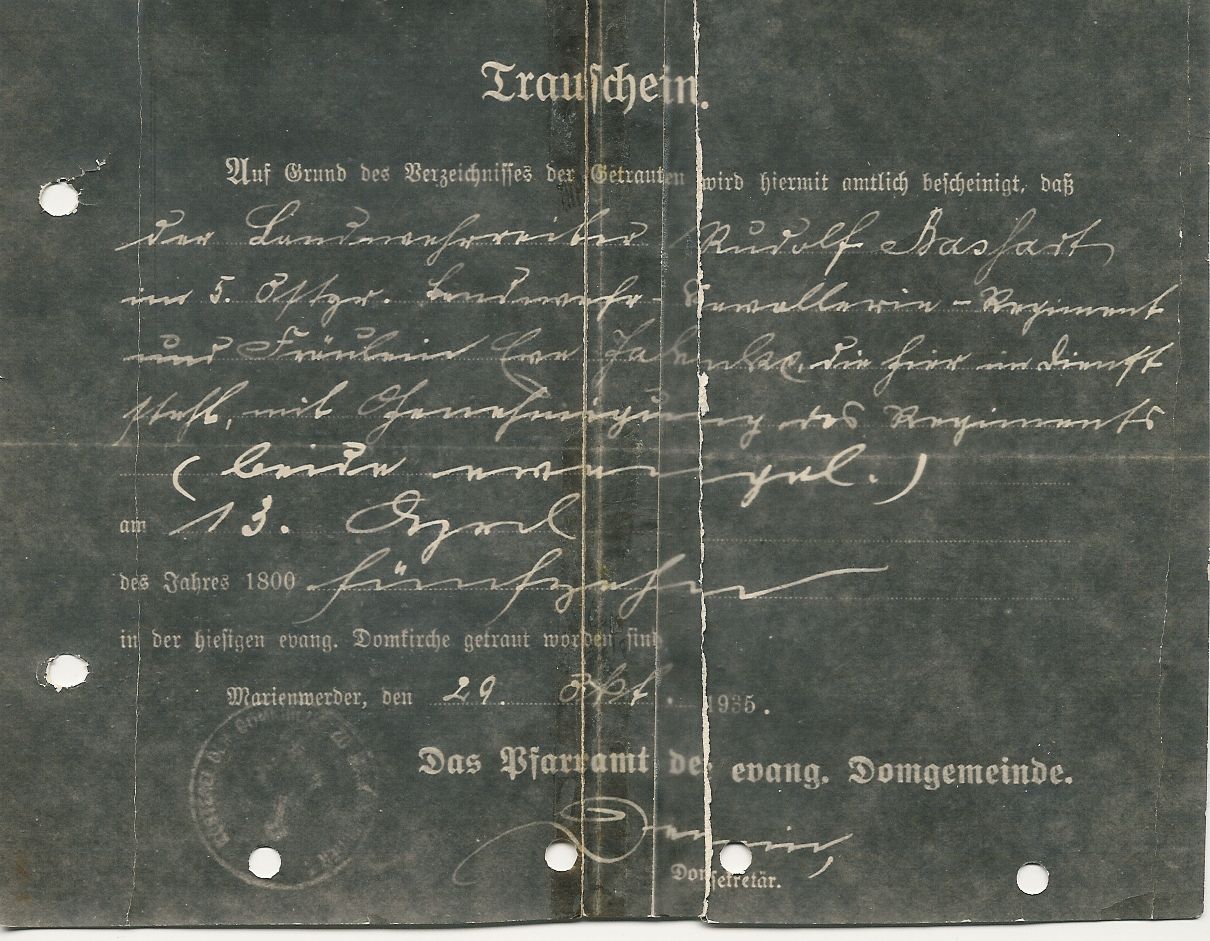 Trauschein.
Auf Grund des Verzeichnisses der Getrauten wird hiermit amtlich bescheinigt, daß
der Landwehrreiter Rudolf
im 5. Ostpr. Landwehr-Kavallerie-Regiment
und Fräulein Eva die hier in Dienst
steht, mit Genehmigung des Regiments
(beide evangel.)
am 13. April
des Jahres 1800 fünfzehn
in der hiesigen evang. Domkirche getraut worden sind
Marienwerder, den 29. Okt. 1935.
Das Pfarramt der evang. Domgemeinde.
Domsekretär.